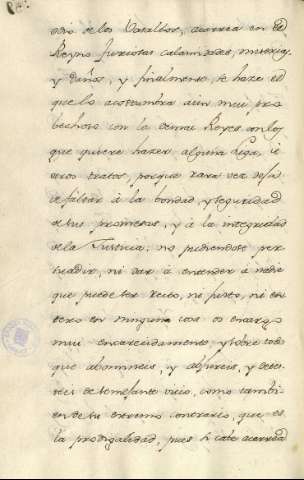 odio de los Vasallos, acarrea en el
Reyno furiosas calamidades, miserias,
y daños, y finalmente, se haze el
que lo acostumbra aun mui pro
bechoso con los demas Reyes con los
que quiere hazer alguna Liga, ù
otros tratos, porque rara vez dexa
de faltar à la bondad, y seguridad
de sus promesas, y à la integridad
de la Justicia; no pudiendose per
suadir, ni dar à entender à nadie
que puede ser recto, ni justo, ni en
tero en ninguna cosa os encargo
mui encarecidamente, y sobre todo
que abomineis, y
teis de semejante vicio, como tambi
en de su extremo contrario, que es
la prodigalidad, pues si este acarrea